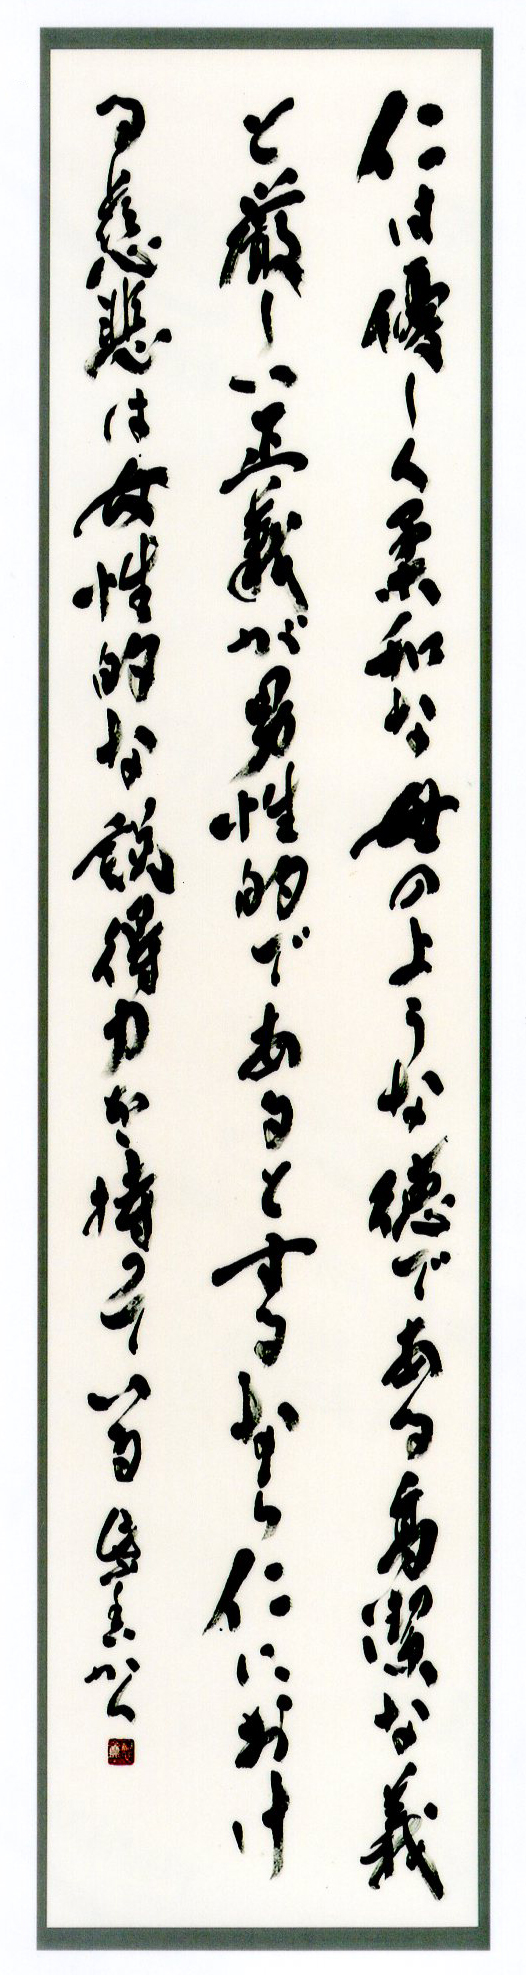 仁は優しく柔和な母のような徳である高潔な義
と厳しい正義が男性的であるとするなら仁におけ
る慈悲は女性的な説得力を持っている